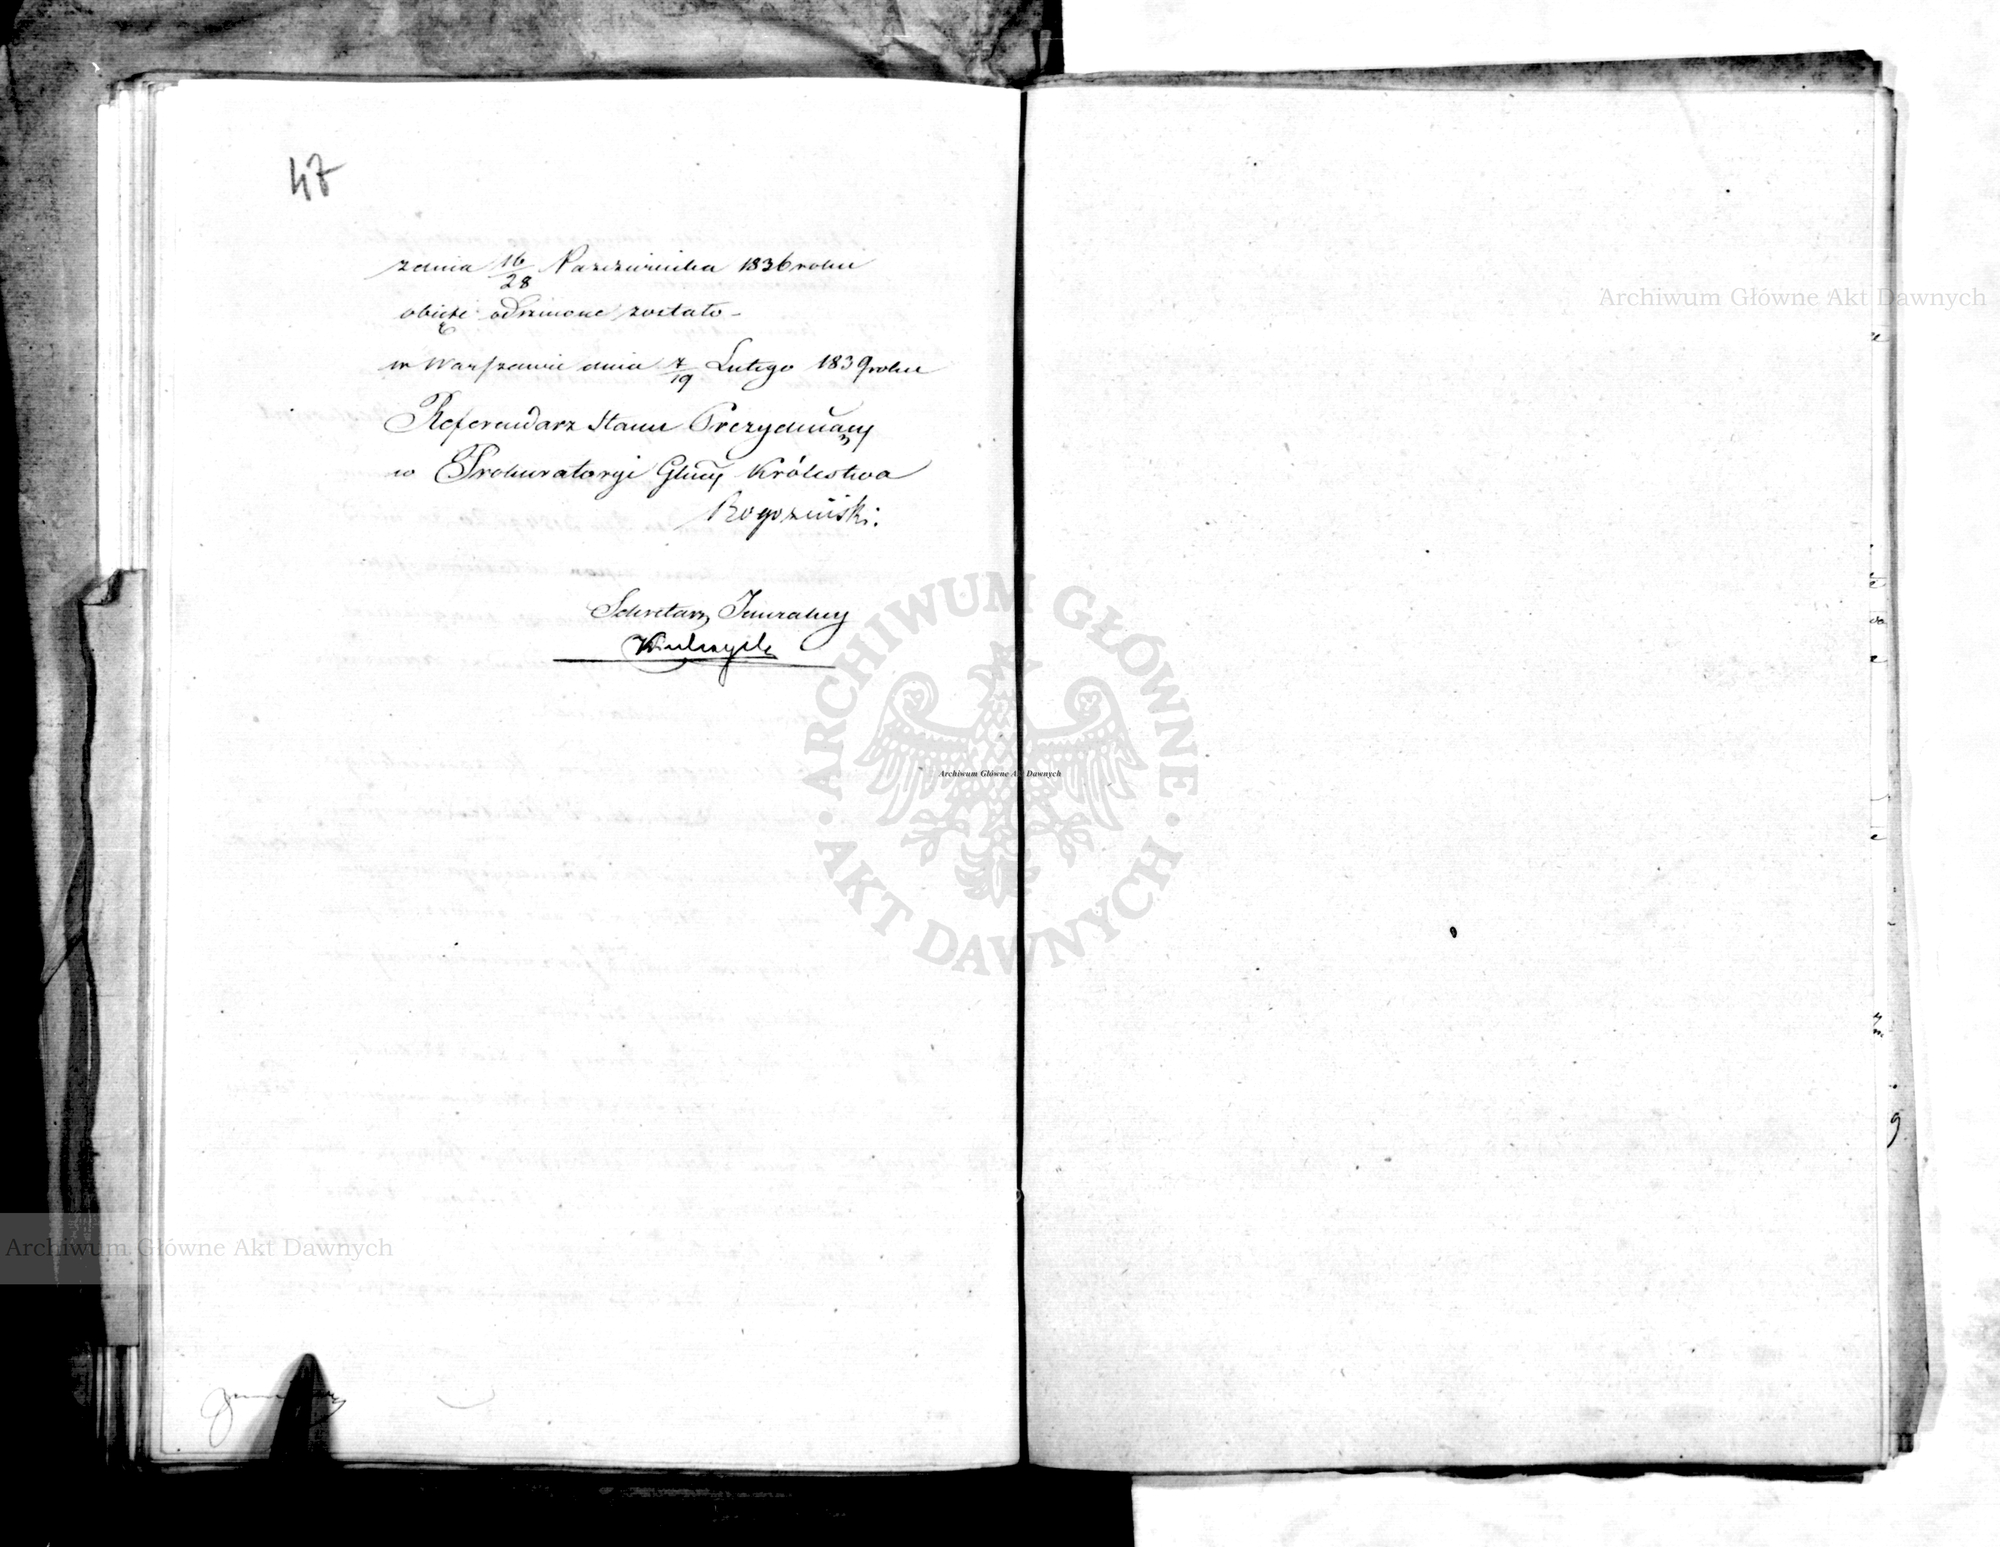 47
z dnia 16/28 Października 1836 roku
obięte zostało
w Warszawie dnia 7/19 Lutego 1839 roku
Referendarz Stanu Prezyduiący
w Prokuratoryi Głnéy Królestwa
Rogoziński.
Sekretarz Jeneralny
Archiwum Główne Akt Dawnych
ARCHIWUM GŁÓWNE AKT DAWNYCH
Archiwum Główne Akt Dawnych
Archiwum Główne Akt Dawnych